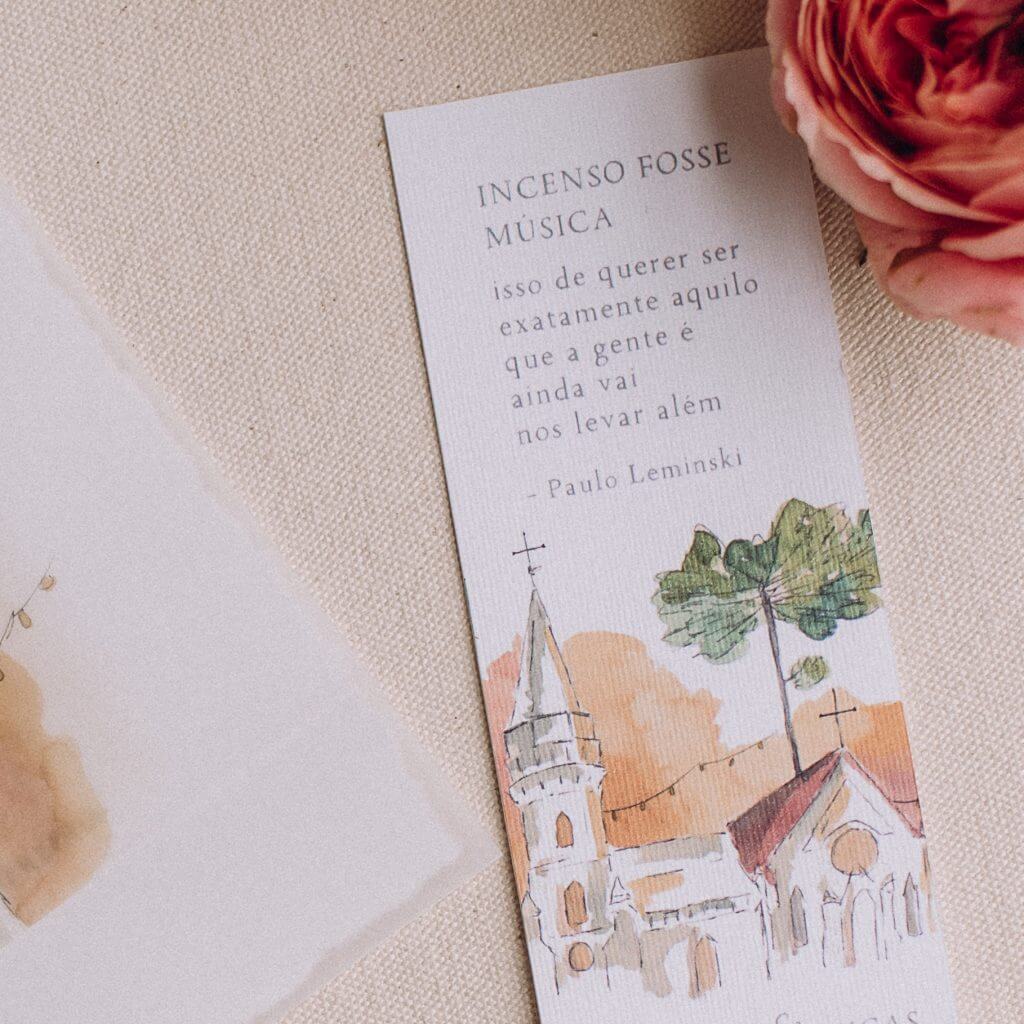 INCENSO FOSSE
MÚSICA
isso de querer ser
exatamente aquilo
que a gente é
ainda vai
nos levar além
- Paulo Leminski